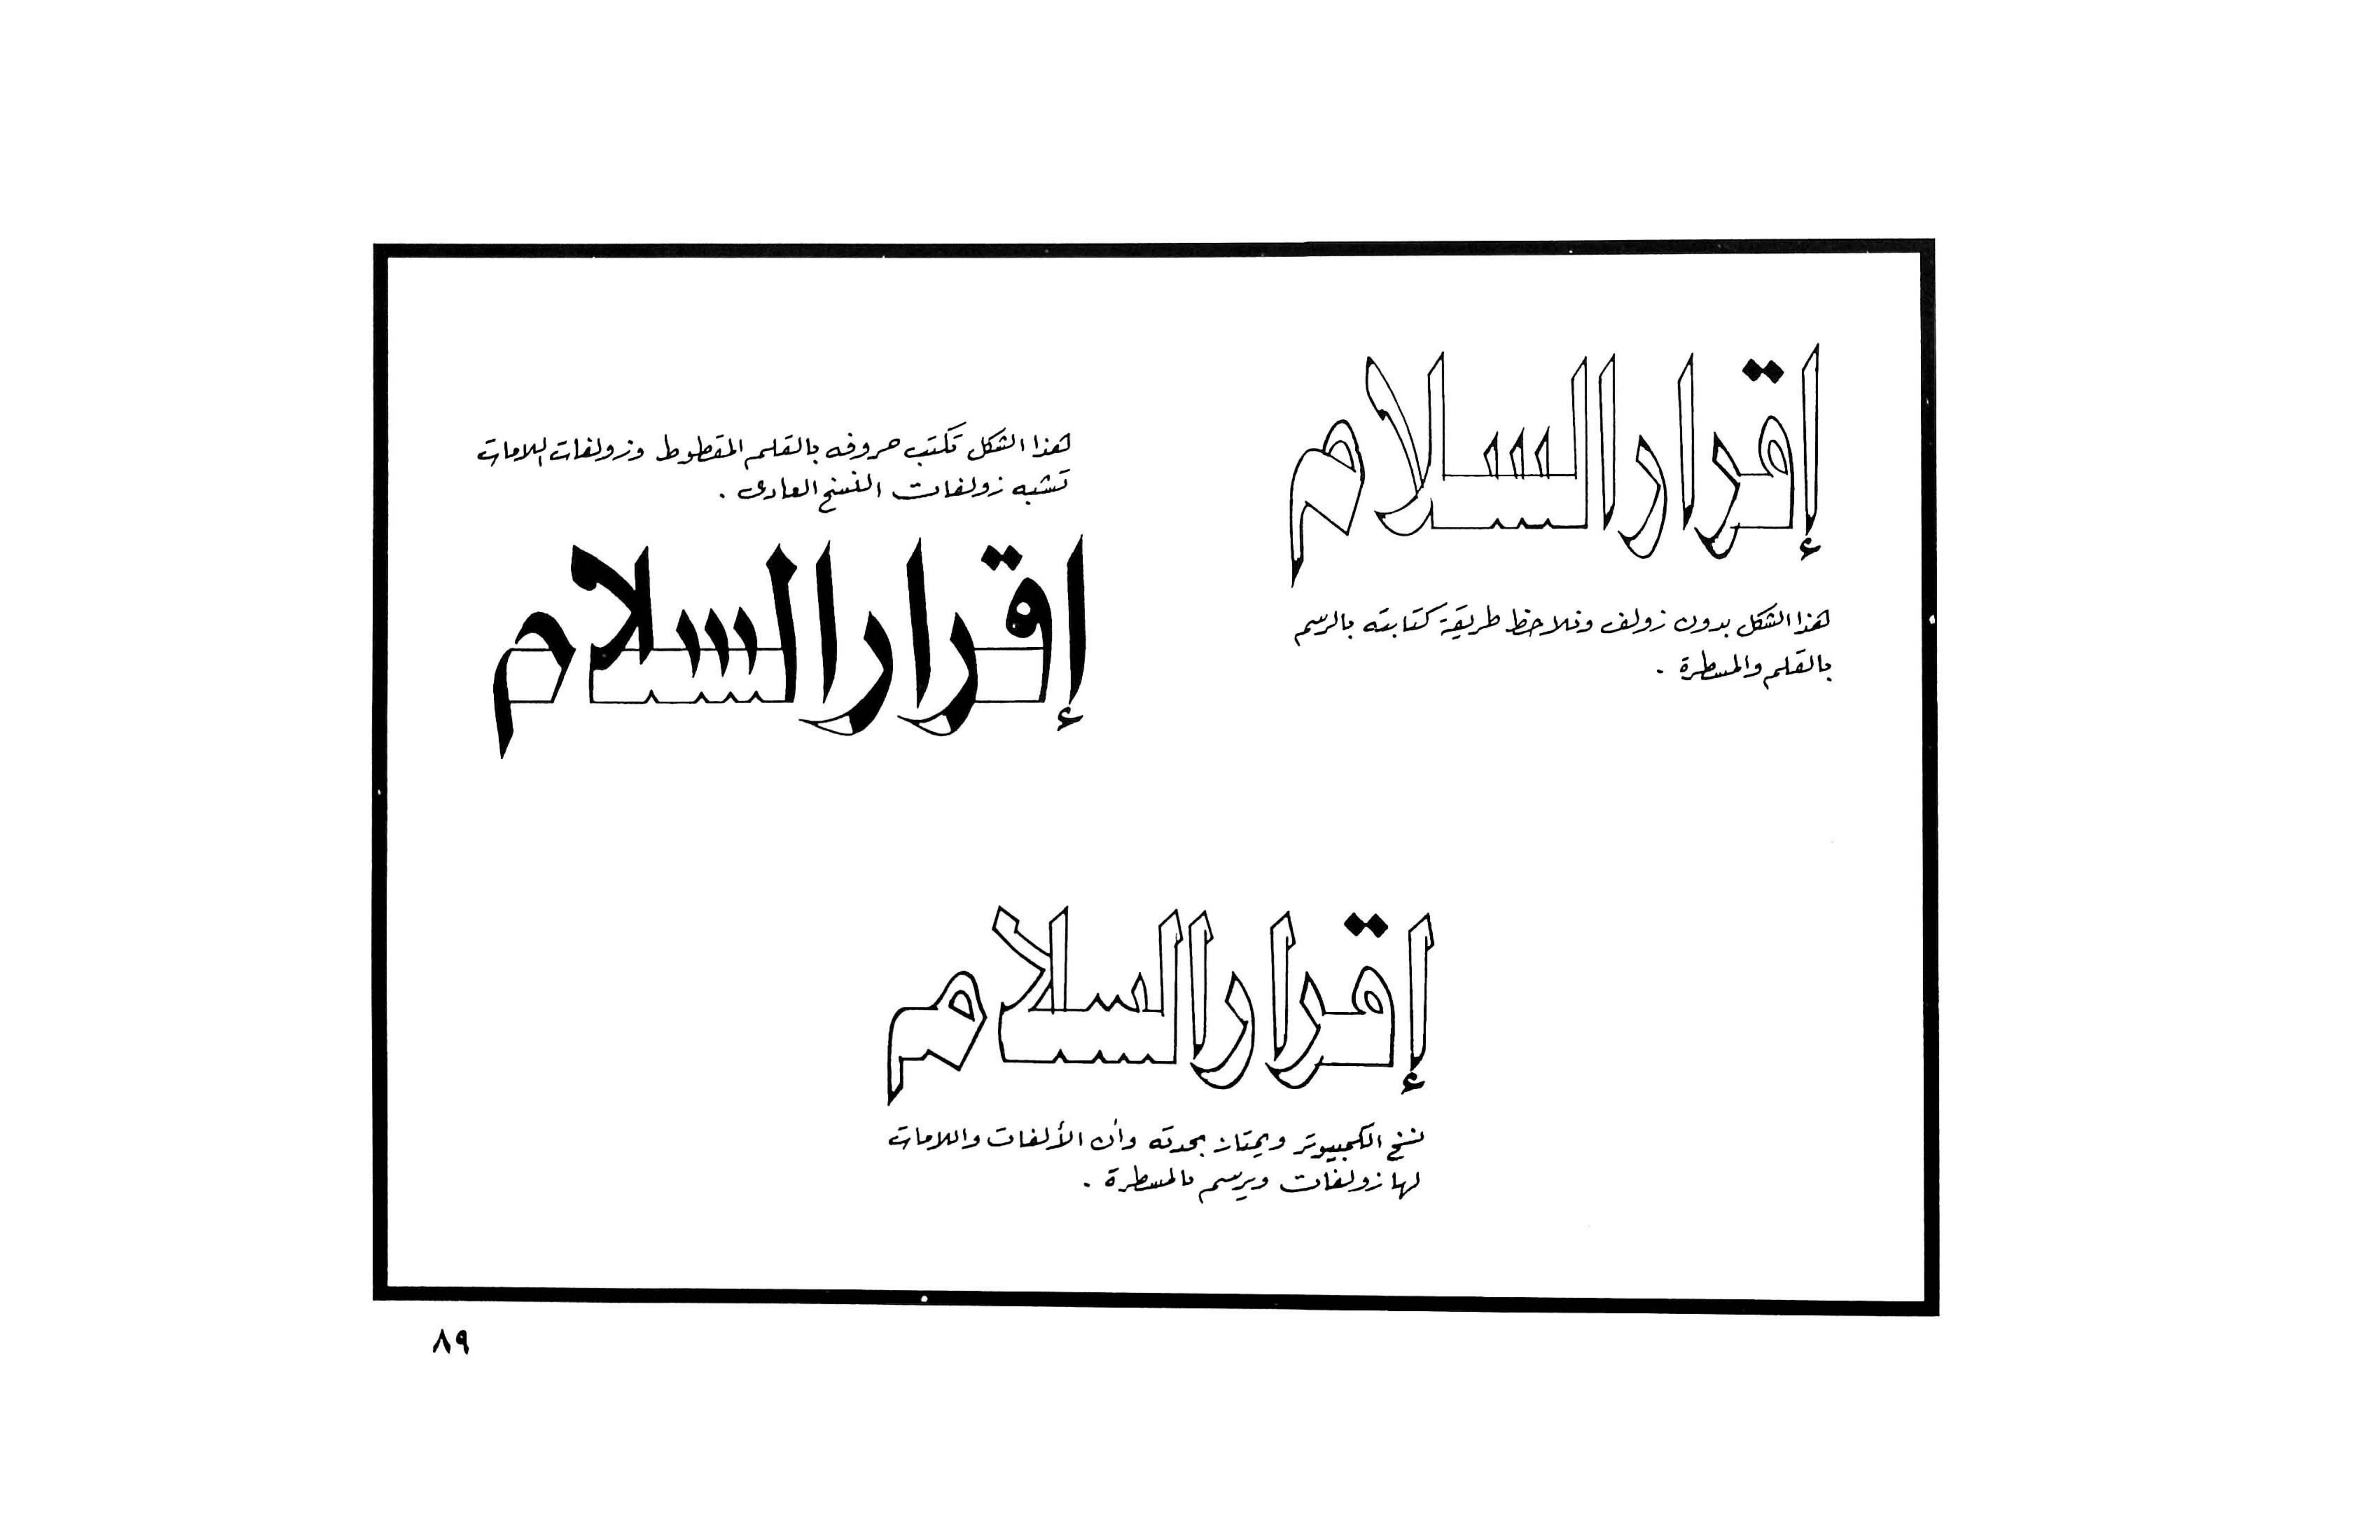 إقرار السلام
هذا الشكل بدون زولف ونلاحظ طريقة كتابته بالرسم
بالقلم والمسطرة .
هذا الشكل تكتب حروفه بالقلم المقطوط وزولفات اللامات
تشبه زولفات النسخ العادى .
إقرار السلام
إقرار السلام
نسخ الكمبيوتر ويمتاز بحدته وأن الألفات واللامات
لها زولفات ويرسم بالمسطرة .
٨٩